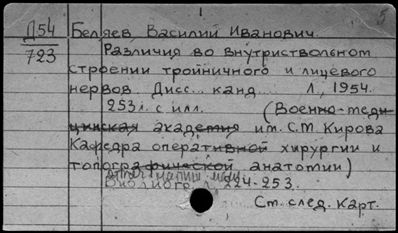 Д54 Беляев Василий Иванович.
723 Различия во внутриствольном
строении тройничного и лицевого
нервов. Дисс... канд... Л., 1954.
253 л. с илл. (Военно-меди-
цинская академия им. С.М. Кирова
Кафедра оперативной хирургии и
топографической анатомии)
Библиогр. л. 224-253.
См. след. карт.